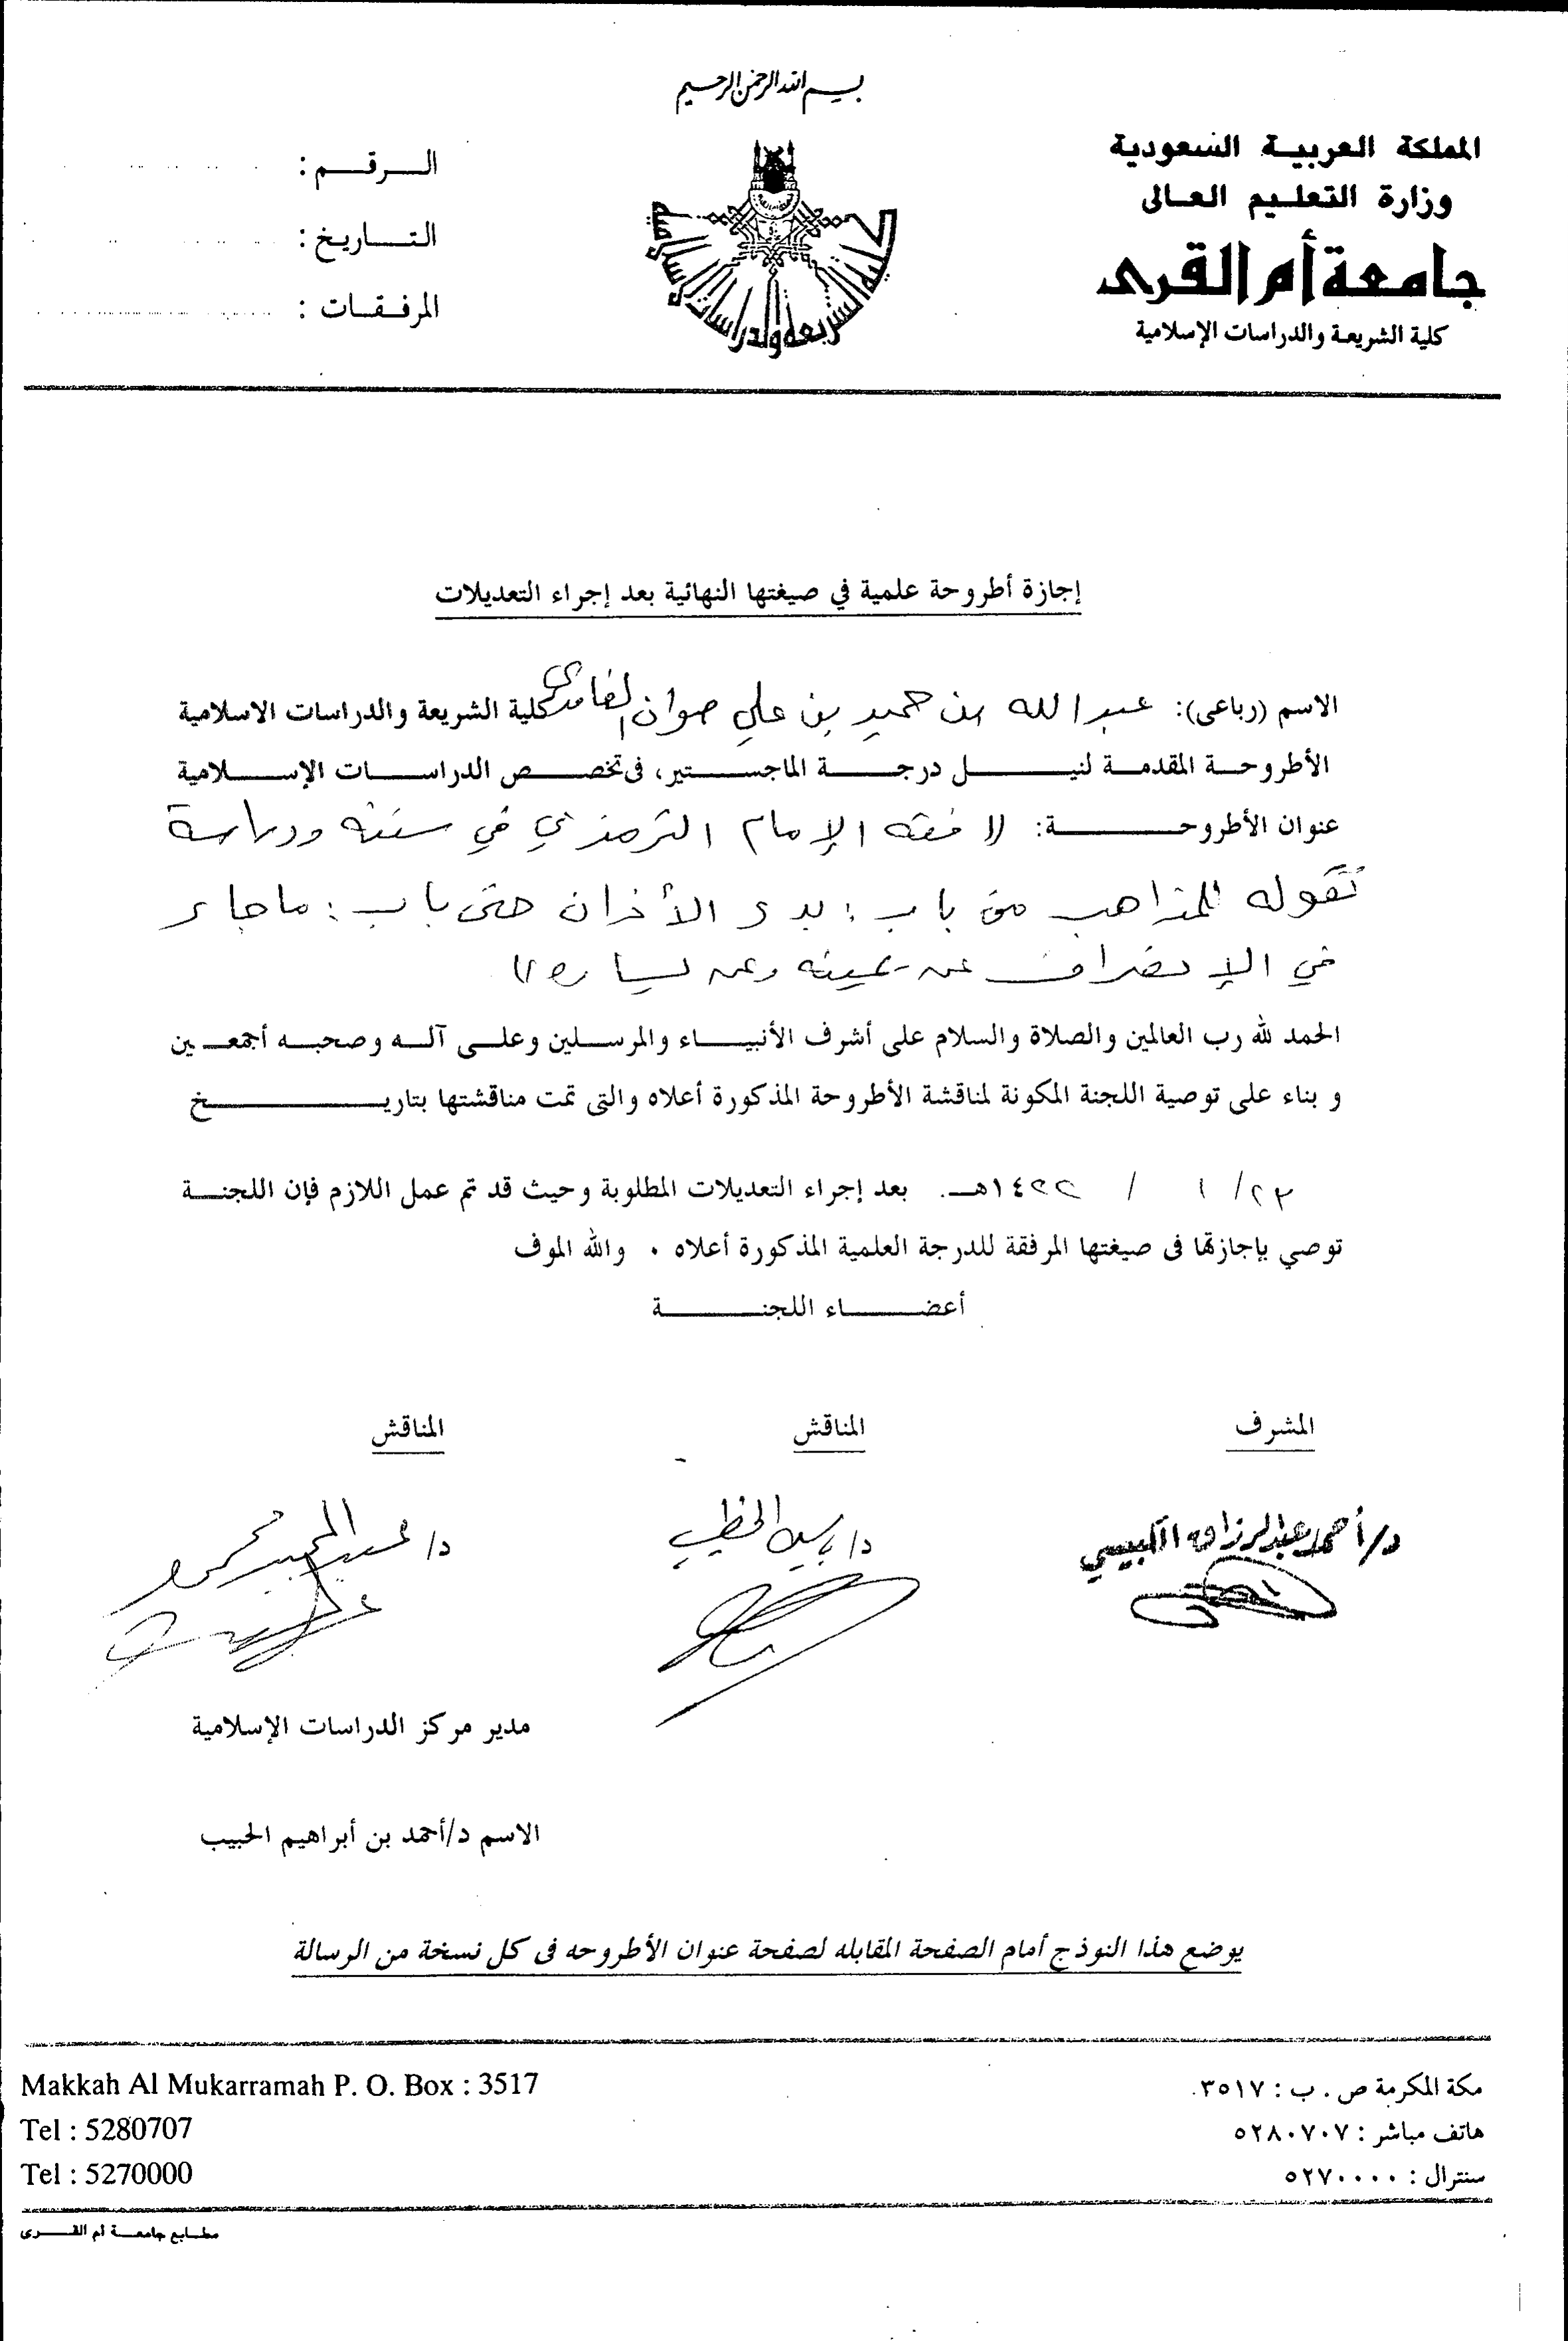 بسم الله الرحمن الرحيم
المملكة العربية السعودية
وزارة التعليم العالى
جامعة أم القرى
كلية الشريعة والدراسات الإسلامية
الرقم :
التاريخ :
المرفقات :
إجازة أطروحة علمية في صيغتها النهائية بعد إجراء التعديلات
الاسم (رباعى): عبد الله بن حميد بن علي صوان الغامدي كلية الشريعة والدراسات الاسلامية
الأطروحة المقدمة لنيل درجة الماجستير، فى تخصص الدراسات الإسلامية
عنوان الأطروحة: (( فقه الإمام الترمذي في سننه ودراسة
نقوله للمذاهب من باب : بدء الأذان حتى باب : ما جاء
في الإنصراف عن يمينه وعن يساره ))
الحمد لله رب العالمين والصلاة والسلام على أشرف الأنبياء والمرسلين وعلى آله وصحبه أجمعين
و بناء على توصية اللجنة المكونة لمناقشة الأطروحة المذكورة أعلاه والتى تمت مناقشتها بتاريخ
٢٣/ ١ / ١٤٢٢هـ. بعد إجراء التعديلات المطلوبة وحيث قد تم عمل اللازم فإن اللجنة
توصي بإجازتها فى صيغتها المرفقة للدرجة العلمية المذكورة أعلاه . والله الموف
أعضاء اللجنة
المشرف المناقش المناقش
د/أحمد عبدالرزاق الكبيسي د/ ياسين الخطيب د/ عبد المجيد محمود
مدير مركز الدراسات الإسلامية
الاسم د/أحمد بن أبراهيم الحبيب
يوضع هذا النوذج أمام الصفحة المقابله لصفحة عنوان الأطروحه فى كل نسخة من الرسالة
مكة المكرمة ص . ب : ٣٥١٧.
هاتف مباشر : ٥٢٨٠٧٠٧
سنترال : ٥٢٧٠٠٠٠
Makkah Al Mukarramah P. O. Box : 3517
Tel : 5280707
Tel : 5270000
مطابع جامعة أم القرى